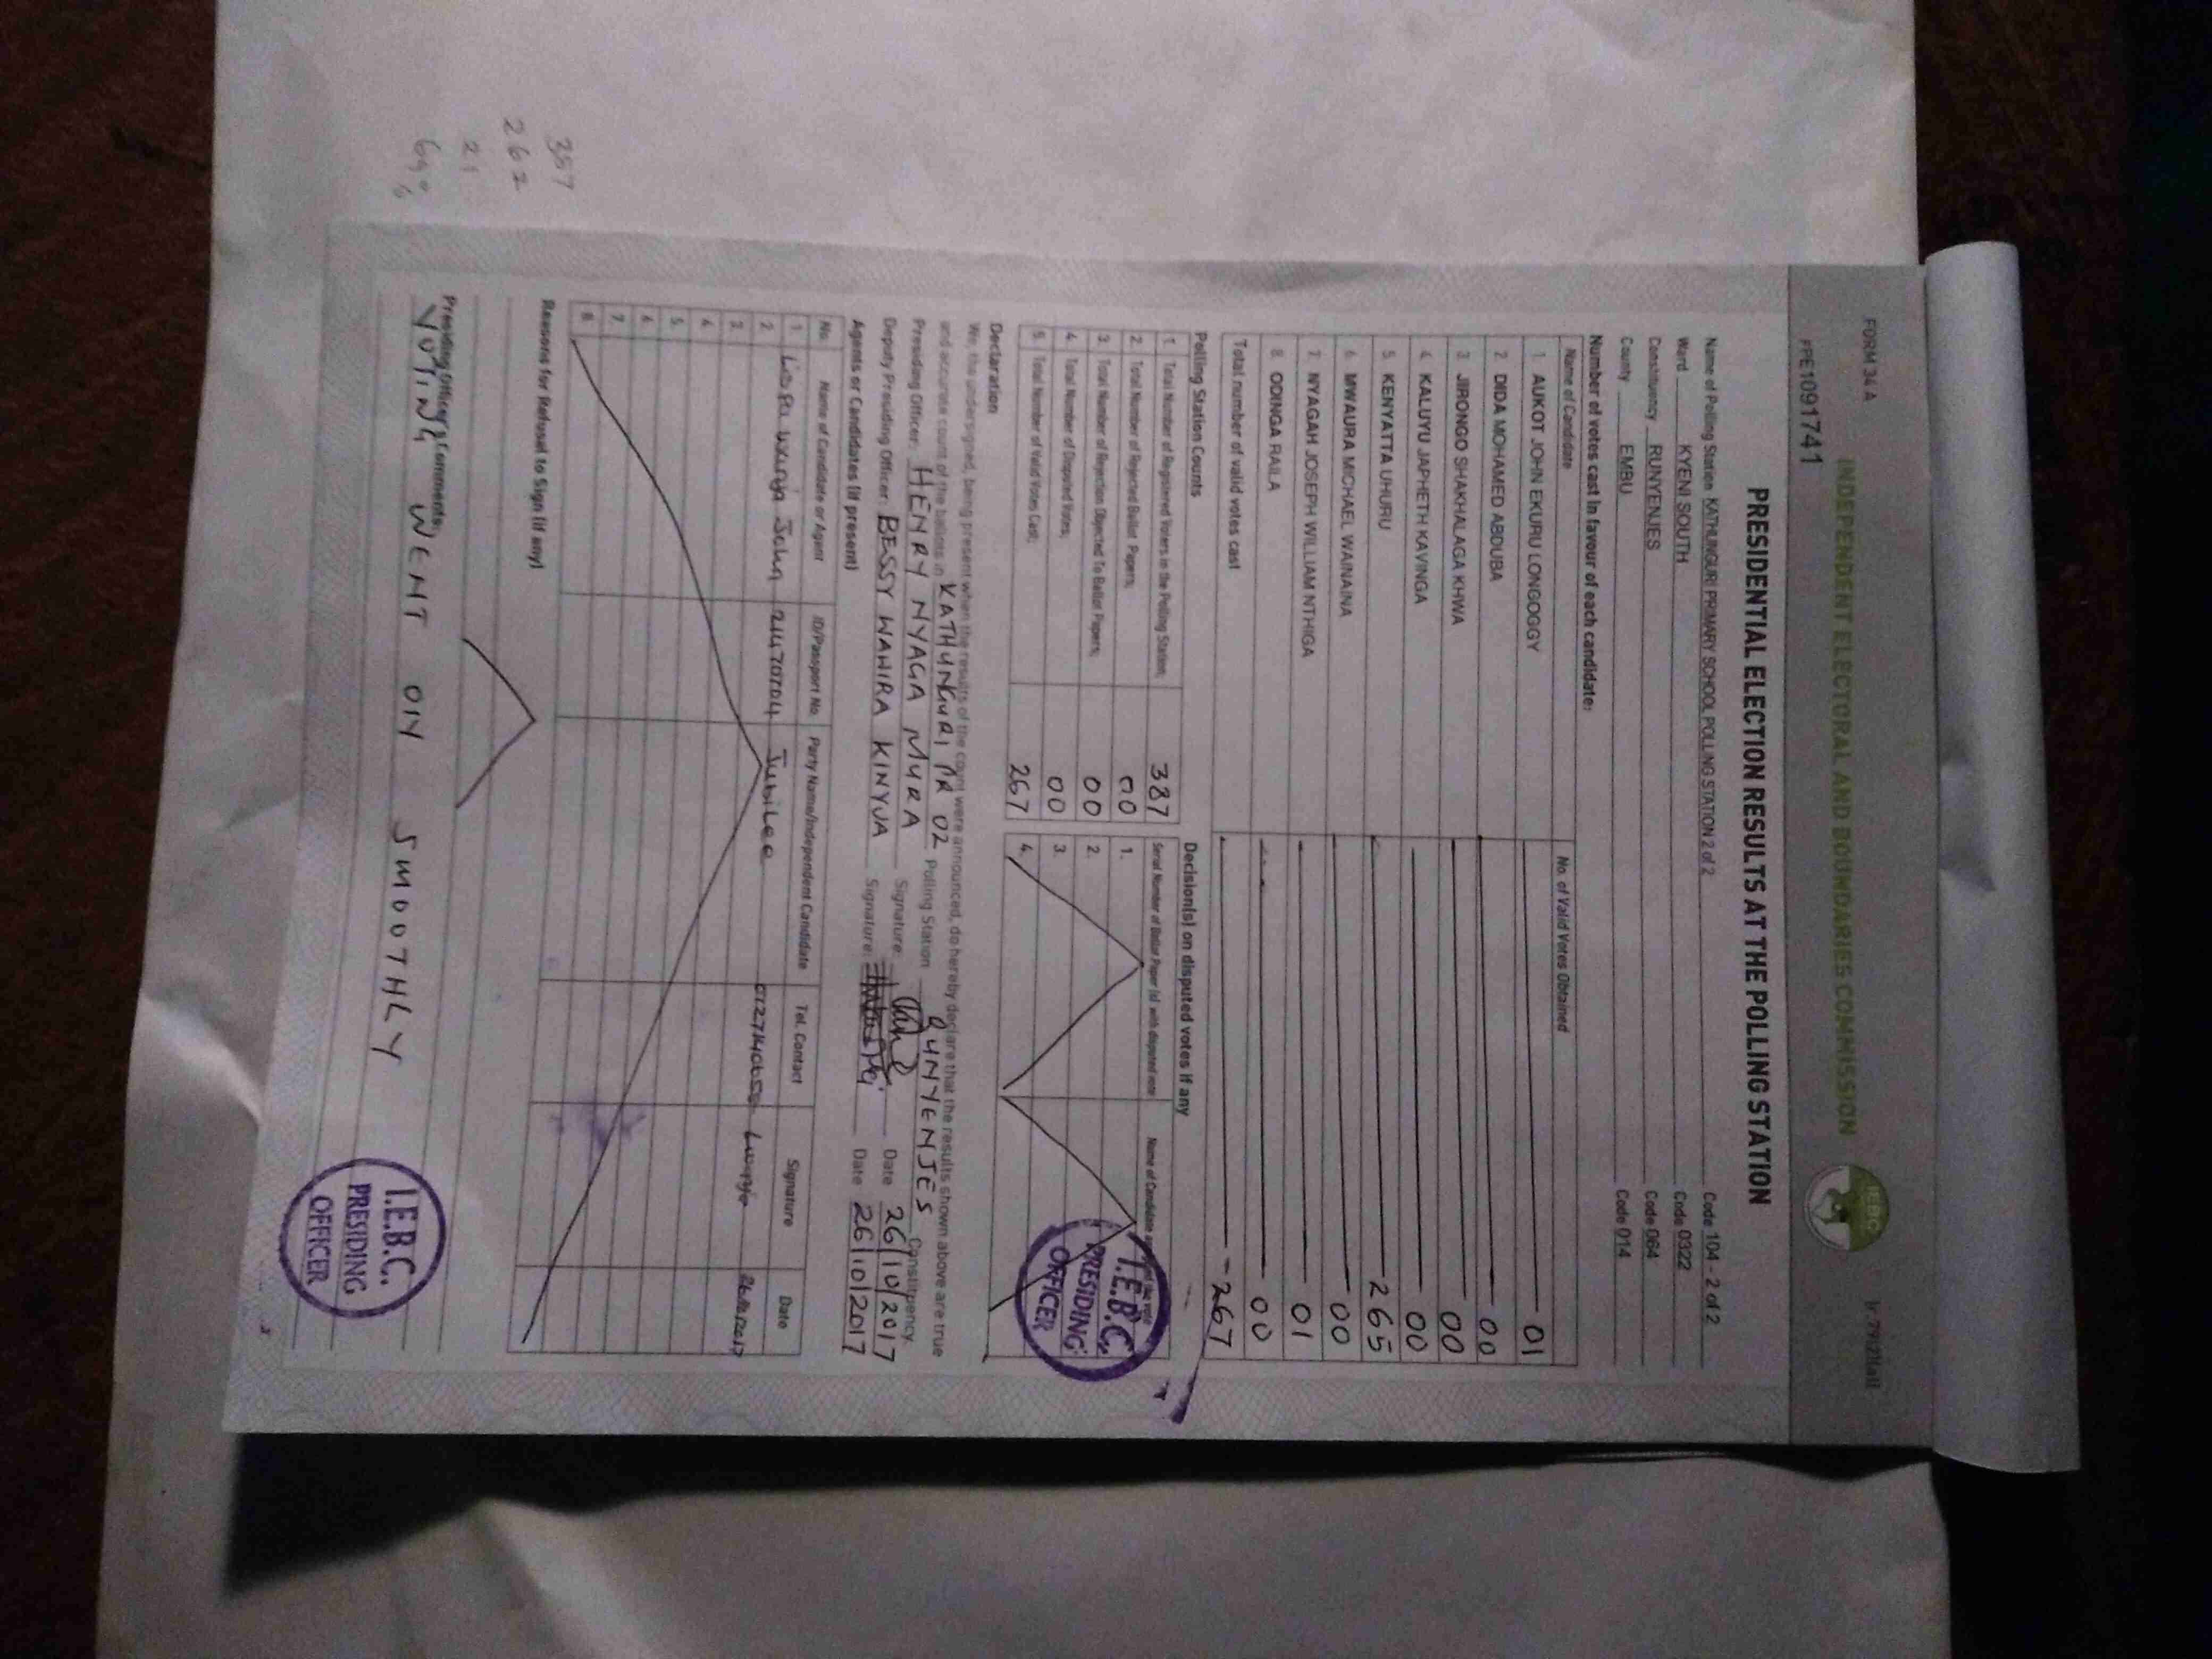 FORM 34 A
INDEPENDENT ELECTORAL AND BOUNDARIES COMMISSION
IEBC
PPE1091741
PRESIDENTIAL ELECTION RESULTS AT THE POLLING STATION
Name of Polling Station KATHUNGURI PRIMARY SCHOOL POLLING STATION 2 of 2 Code 104 - 2 of 2
Ward KYENI SOUTH Code 0322
Constituency RUNYENJES Code 064
County EMBU Code 014
Number of votes cast in favour of each candidate:
Name of Candidate No. of Valid Votes Obtained
1. AUKOT JOHN EKURU LONGOGGY 01
2. DIDA MOHAMED ABDUBA 00
3. JIRONGO SHAKHALAGA KHWA 00
4. KALUYU JAPHETH KAVINGA 00
5. KENYATTA UHURU 265
6. MWAURA MICHAEL WAINAINA 00
7. NYAGAH JOSEPH WILLIAM NTHIGA 01
8. ODINGA RAILA 00
Total number of valid votes cast 267
Polling Station Counts
1. Total Number of Registered Voters in the Polling Station; 387
2. Total Number of Rejected Ballot Papers; 00
3. Total Number of Rejection Objected To Ballot Papers; 00
4. Total Number of Disputed Votes; 00
5. Total Number of Valid Votes Cast; 267
Decision(s) on disputed votes if any
Serial Number of Ballot Paper (s) with disputed vote Name of Candidate
1.
2.
3.
4.
I.E.B.C.
PRESIDING
OFFICER
Declaration
We, the undersigned, being present when the results of the count were announced, do hereby declare that the results shown above are true
and accurate count of the ballots in KATHUNGURI PR 02 Polling Station RUNYENJES Constituency
Presiding Officer: HENRY NYAGA MURA Signature: Date 26/10/2017
Deputy Presiding Officer: BESSY WAWIRA KINYUA Signature: Date 26/10/2017
Agents or Candidates (if present)
No. Name of Candidate or Agent ID/Passport No. Party Name/Independent Candidate Tel. Contact Signature Date
1. John Jubilee
2.
3.
4.
5.
6.
7.
8.
Reasons for Refusal to Sign (if any)
Presiding Officer's Comments:
VOTING WENT ON SMOOTHLY
I.E.B.C.
PRESIDING
OFFICER
387
262
21
69%